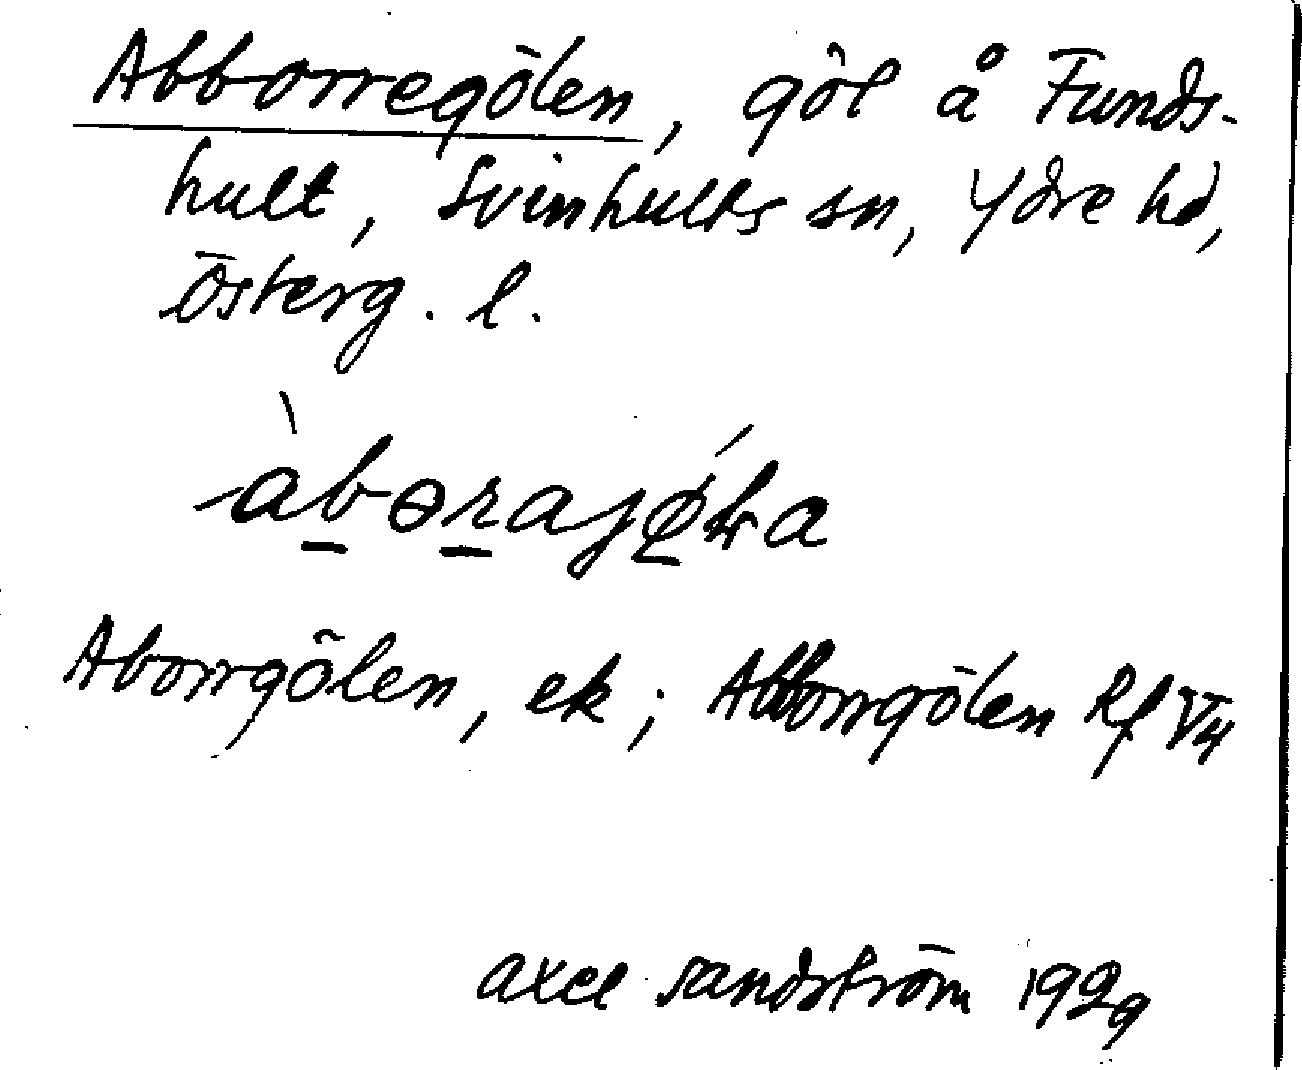 Abborregölen, göl å Funds-
hult, Svinhults sn, Ydre hd,
Österg. l.
àbɵrajǿɫa
Aborrgölen, ek; Abborrgölen Rf V4
Axel Sandström 1929